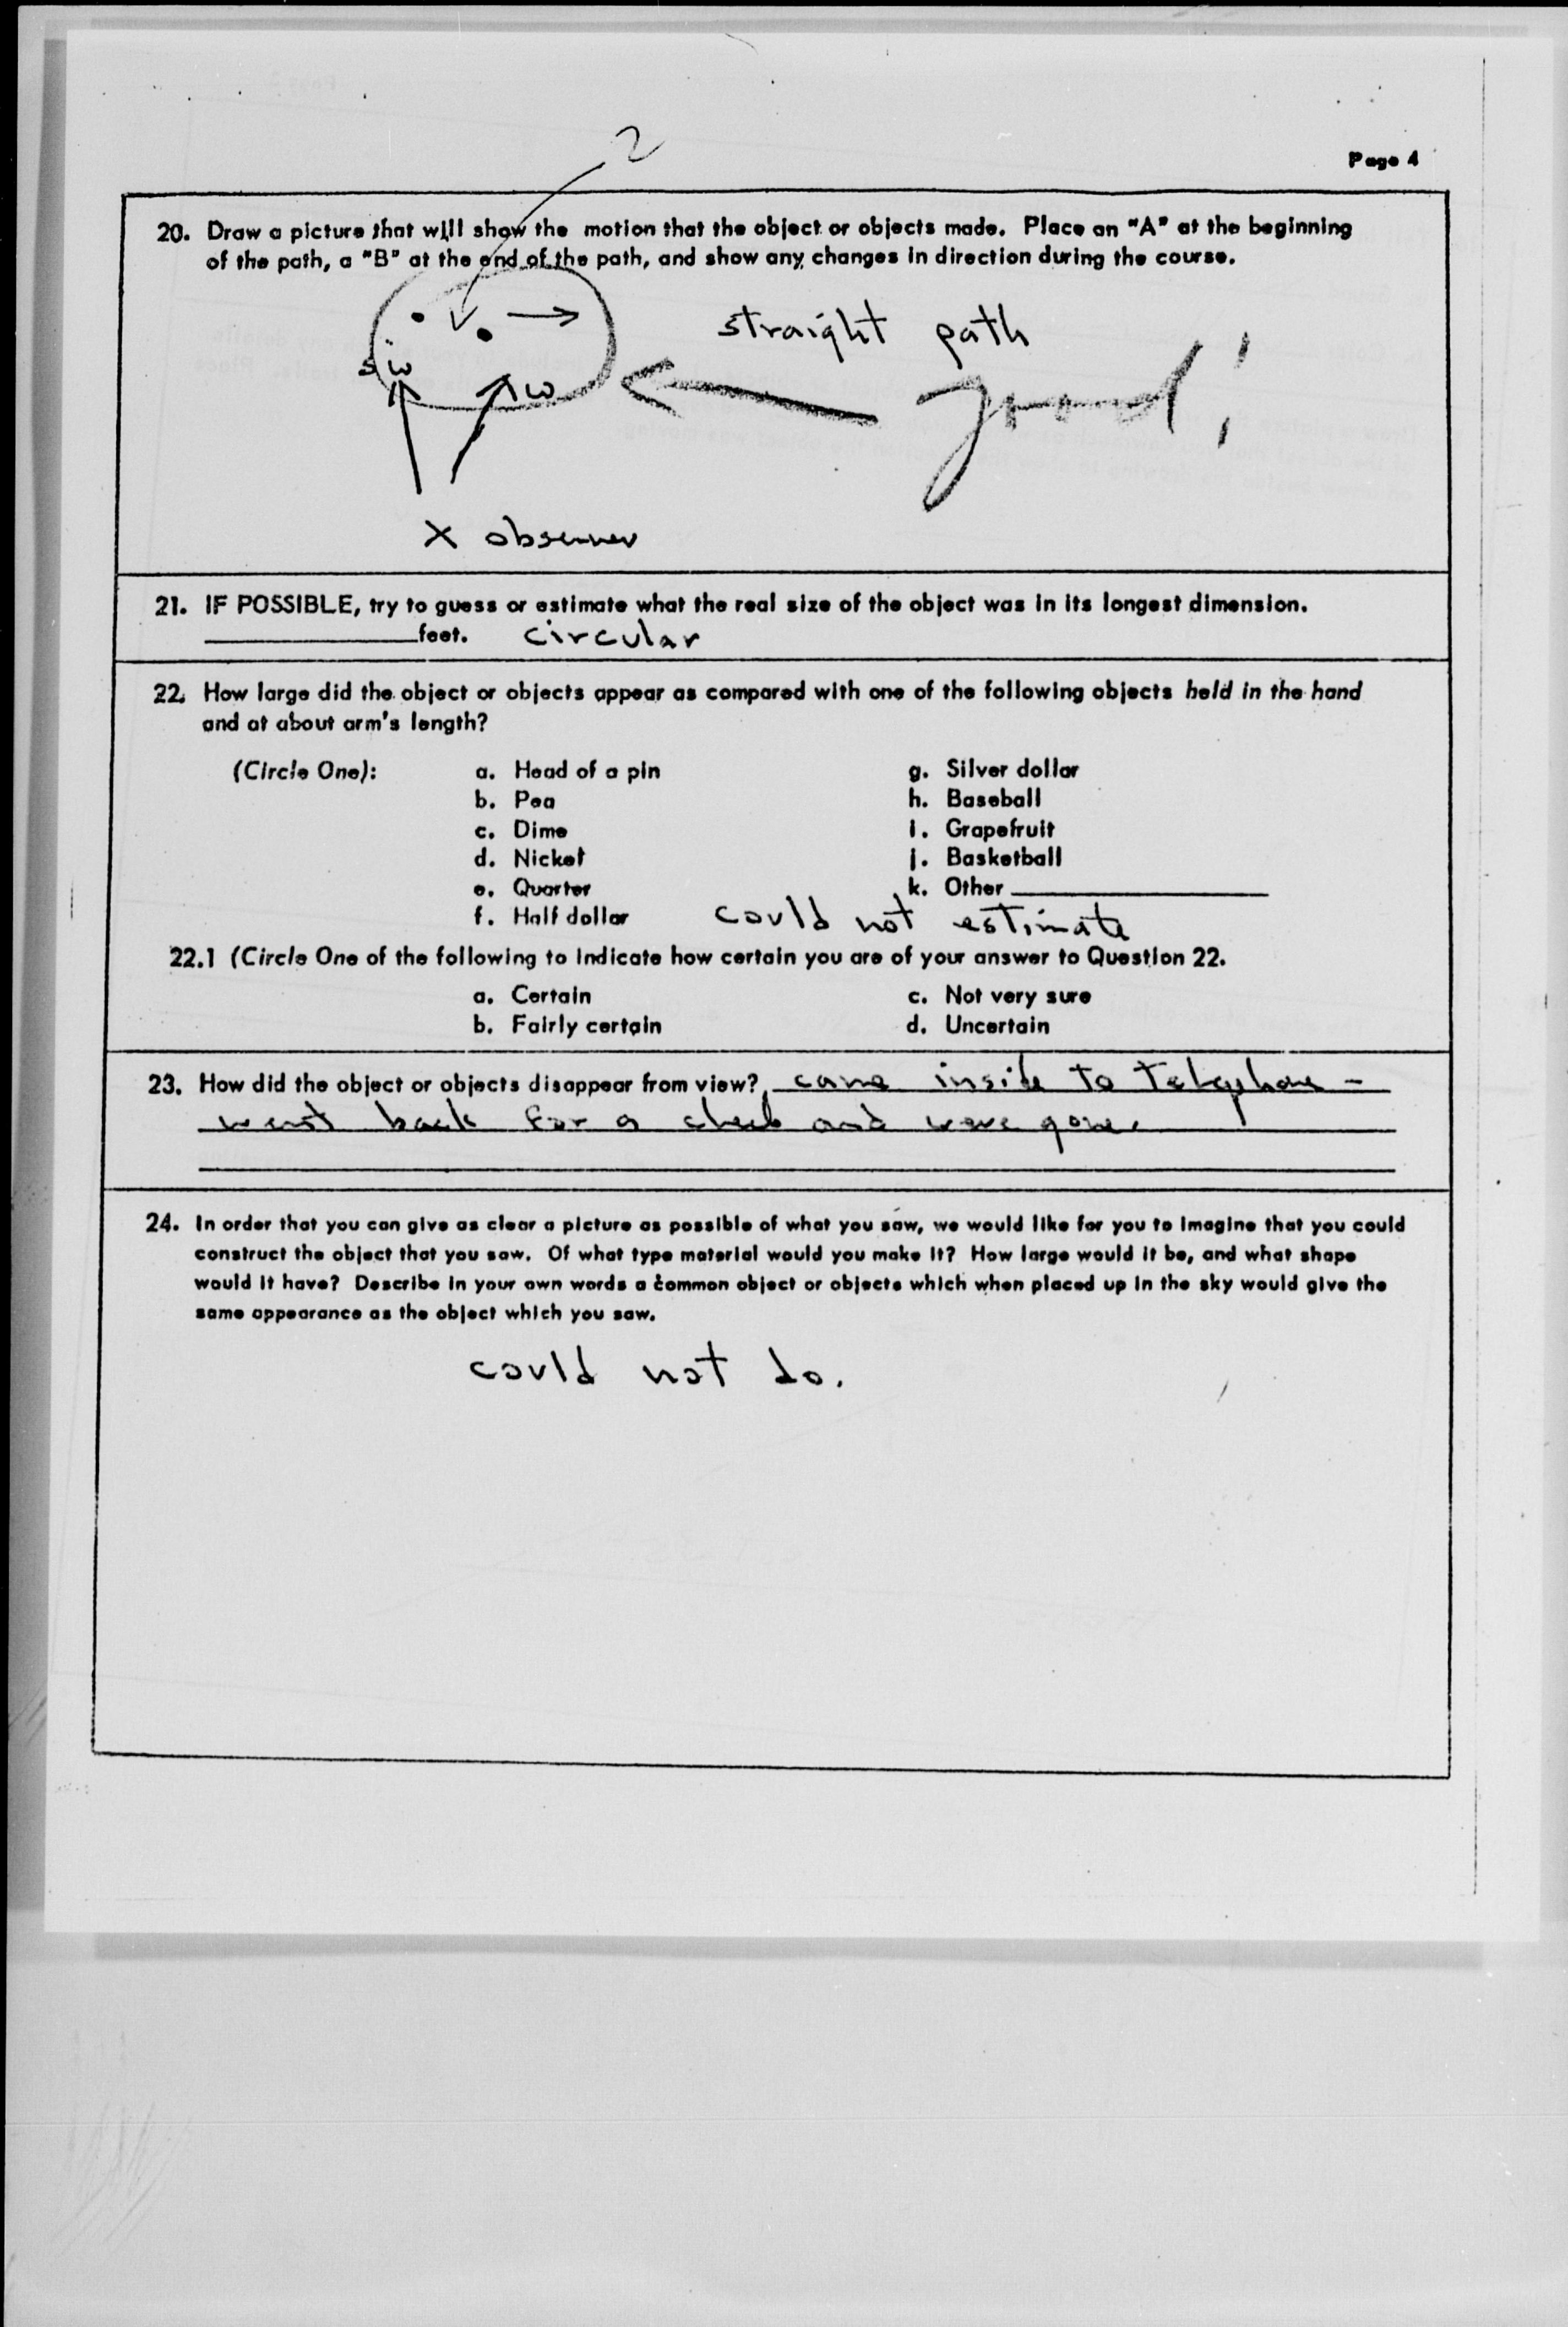 2
Page 4
20. Draw a picture that will show the motion that the object or objects made. Place an "A" at the beginning
of the path, a "B" at the end of the path, and show any changes in direction during the course.
straight path
SW
W
good!
X observer
21. IF POSSIBLE, try to guess or estimate what the real size of the object was in its longest dimension.
____feet. circular
22. How large did the object or objects appear as compared with one of the following objects held in the hand
and at about arm's length?
(Circle One): a. Head of a pin g. Silver dollar
b. Pea h. Baseball
c. Dime i. Grapefruit
d. Nickel j. Basketball
e. Quarter k. Other ____
f. Half dollar could not estimate
22.1 (Circle One of the following to indicate how certain you are of your answer to Question 22.
a. Certain c. Not very sure
b. Fairly certain d. Uncertain
23. How did the object or objects disappear from view? came inside to telephone -
went back for a check and were gone.
24. In order that you can give as clear a picture as possible of what you saw, we would like for you to imagine that you could
construct the object that you saw. Of what type material would you make it? How large would it be, and what shape
would it have? Describe in your own words a common object or objects which when placed up in the sky would give the
same appearance as the object which you saw.
could not do.